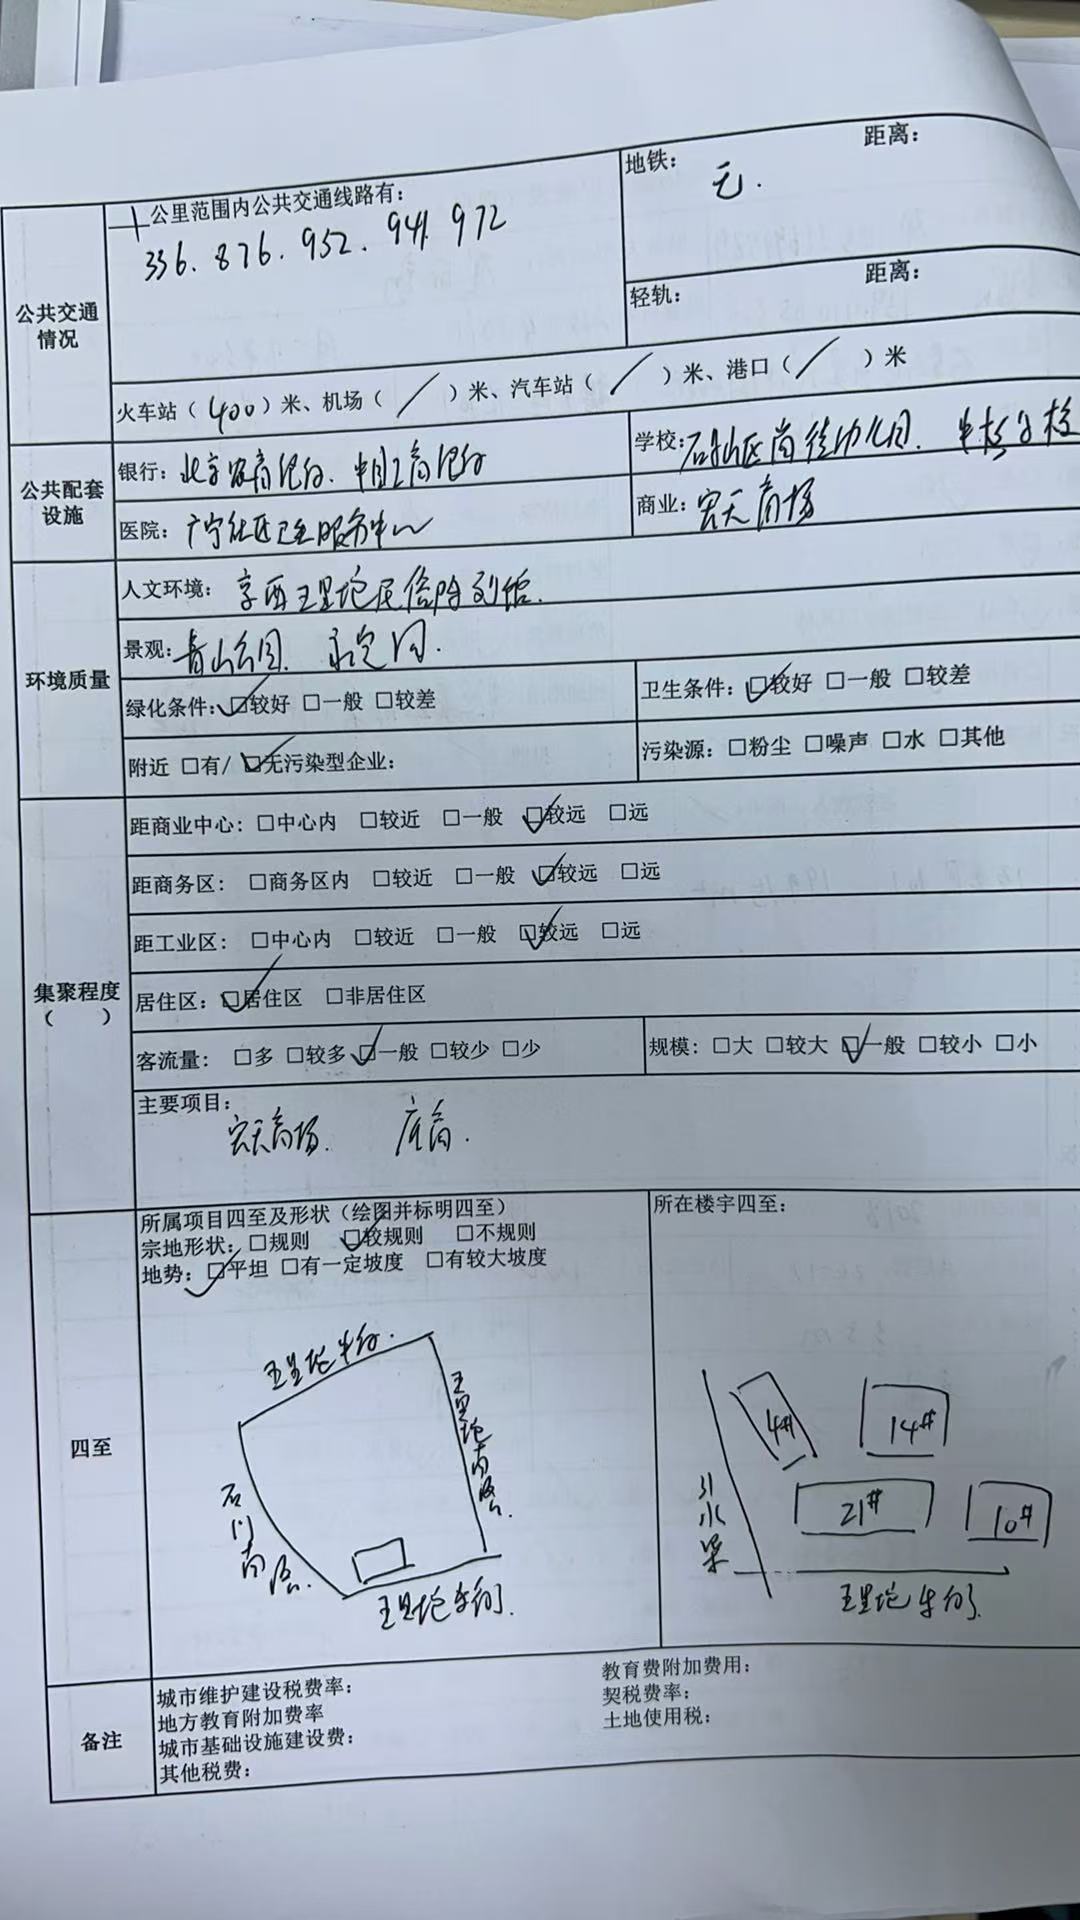 公共交通情况
一公里范围内公共交通线路有：
336. 876. 952. 941. 972
地铁： 距离：
无.
轻轨： 距离：
火车站（400）米、机场（／）米、汽车站（／）米、港口（／）米
公共配套设施
银行：北京农商银行. 中国工商银行
学校：石景山区尚街幼儿园.
医院：广宁社区卫生服务中心
商业：宏天商场
环境质量
人文环境：京西五里坨民俗陈列馆.
景观：青山公园. 永定河.
绿化条件：☑较好 □一般 □较差
卫生条件：☑较好 □一般 □较差
附近 □有/ ☑无污染型企业：
污染源：□粉尘 □噪声 □水 □其他
集聚程度（ ）
距商业中心：□中心内 □较近 □一般 ☑较远 □远
距商务区：□商务区内 □较近 □一般 ☑较远 □远
距工业区：□中心内 □较近 □一般 ☑较远 □远
居住区：☑居住区 □非居住区
客流量：□多 □较多 ☑一般 □较少 □少
规模：□大 □较大 ☑一般 □较小 □小
主要项目：
宏天商场. 底商.
四至
所属项目四至及形状（绘图并标明四至）
宗地形状：□规则 ☑较规则 □不规则
地势：☑平坦 □有一定坡度 □有较大坡度
所在楼宇四至：
五里坨中街.
五里坨南路.
石门南路.
五里坨东街.
4#
14#
21#
10#
引水渠
五里坨东街.
备注
城市维护建设税费率：
教育费附加费用：
地方教育附加费率
契税费率：
城市基础设施建设费：
土地使用税：
其他税费：